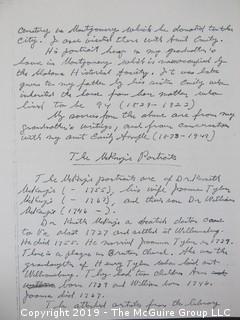 century in Montgomery which he donated to the
City. I once visited there with Aunt Emily.
His portrait hung in my grandfather's
home in Montgomery which is now occupied by
the Alabama Historical Society. It was later
given to my father by his sister Emily who
inherited the home from her mother who
lived to be 94 (1829-1923)
My sources for the above are from my
grandmother's writings, and from conversation
with my aunt Emily
The McKenzie Portraits
The McKenzie portraits are of Dr. Kenneth
McKenzie ( - 1755), his wife Joanna Tyler
McKenzie ( - 1767), and their son Dr. William
McKenzie (1746 - ).
Dr. Kenneth McKenzie a Scotish doctor came
to Va. about 1727 and settled at Williamsburg.
He died 1755. He married Joanna Tyler in 1729.
There is a plaque in Bruton Church. She was the
granddaughter of Henry Tyler who laid out
Williamsburg. They had two children Ann
born 1739 and William born 1746.
Joanna died 1767.
The attached articles from the library
Copyright 2019 - Yellowmaps.com